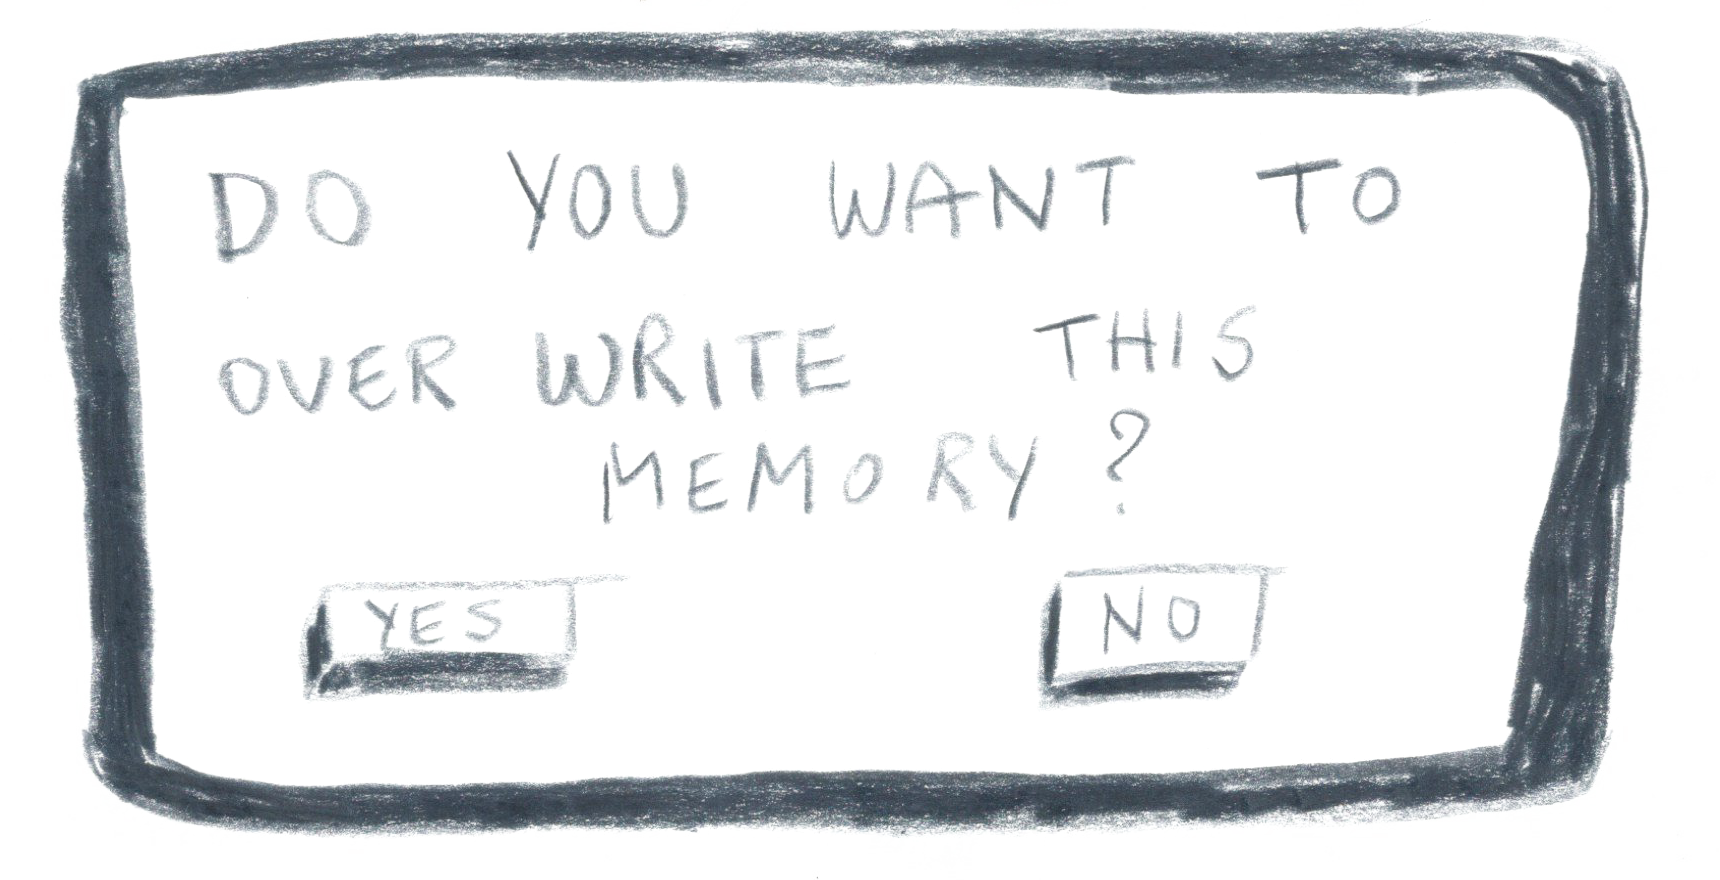 DO YOU WANT TO
OVER WRITE THIS
MEMORY ?
YES NO